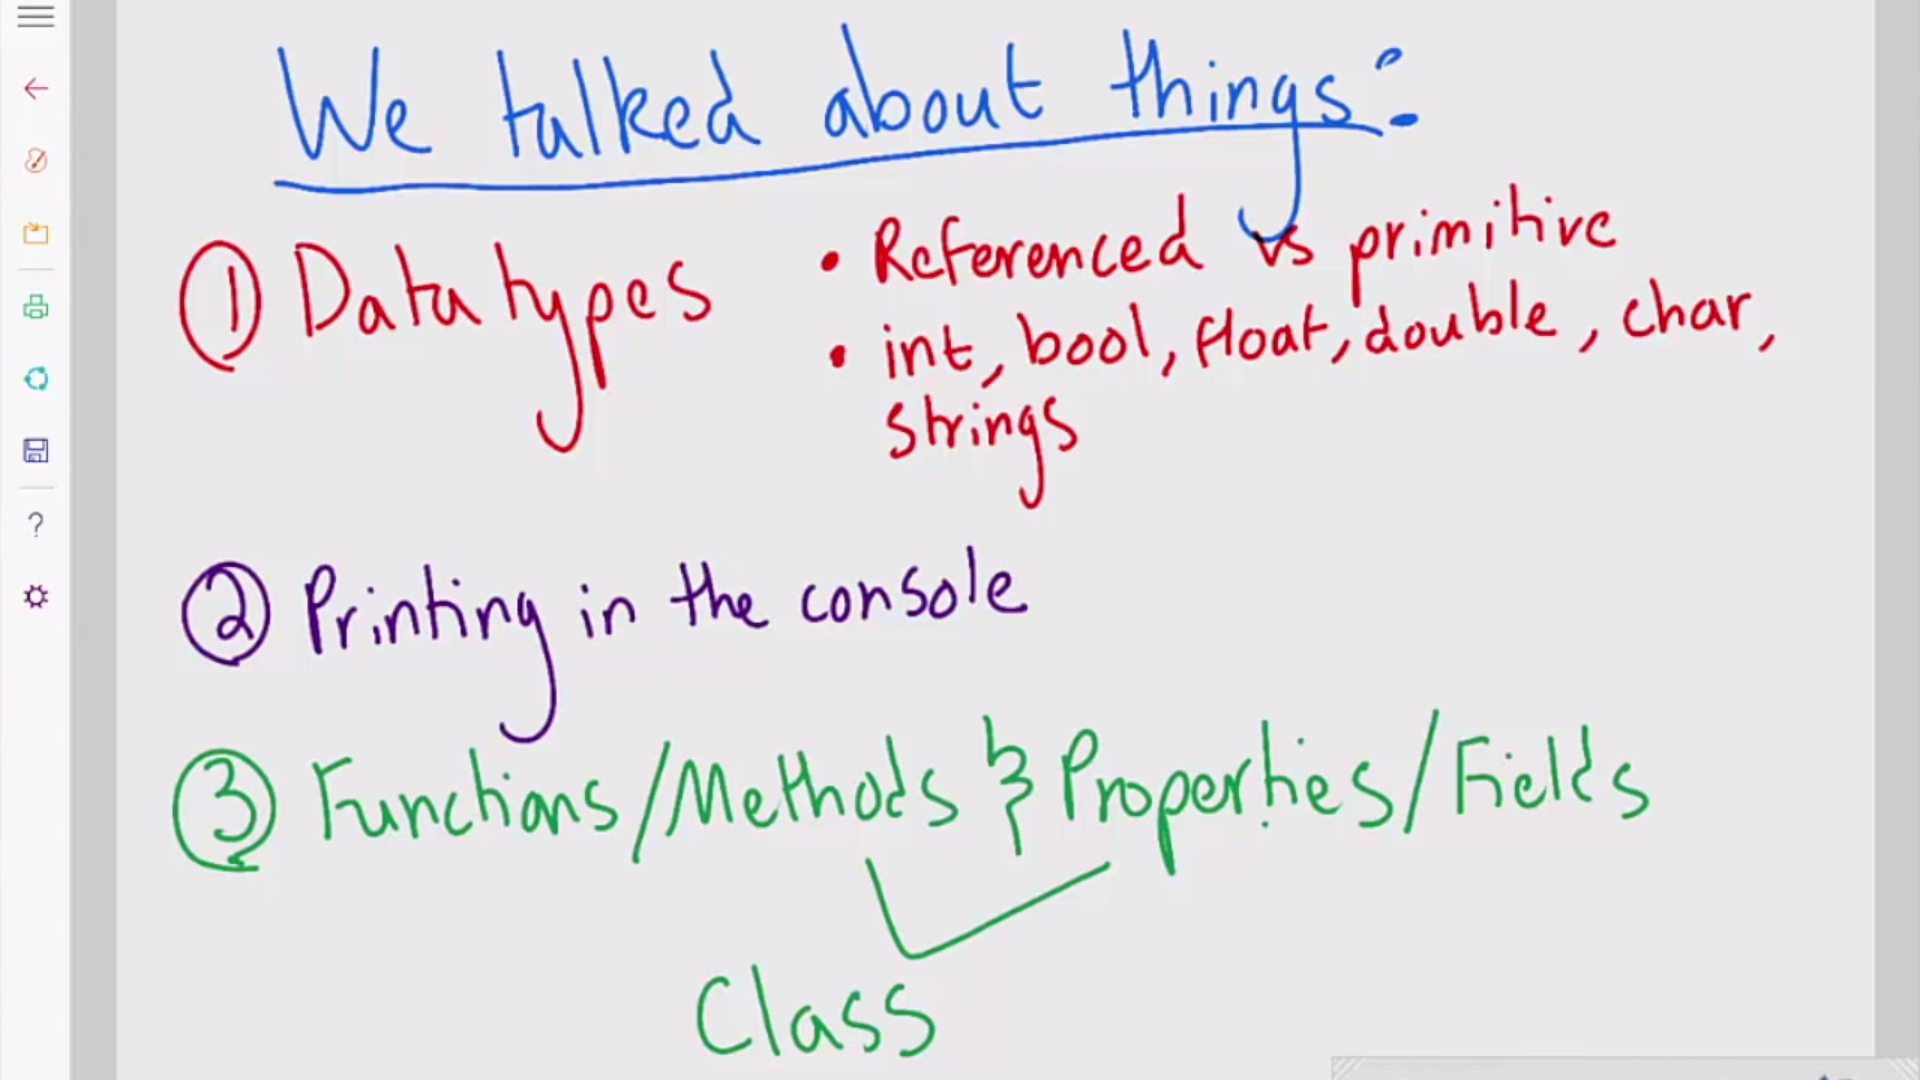 We talked about things:
① Datatypes
• Referenced vs primitive
• int, bool, float, double, char,
strings
② Printing in the console
③ Functions/Methods & Properties/Fields
Class
?